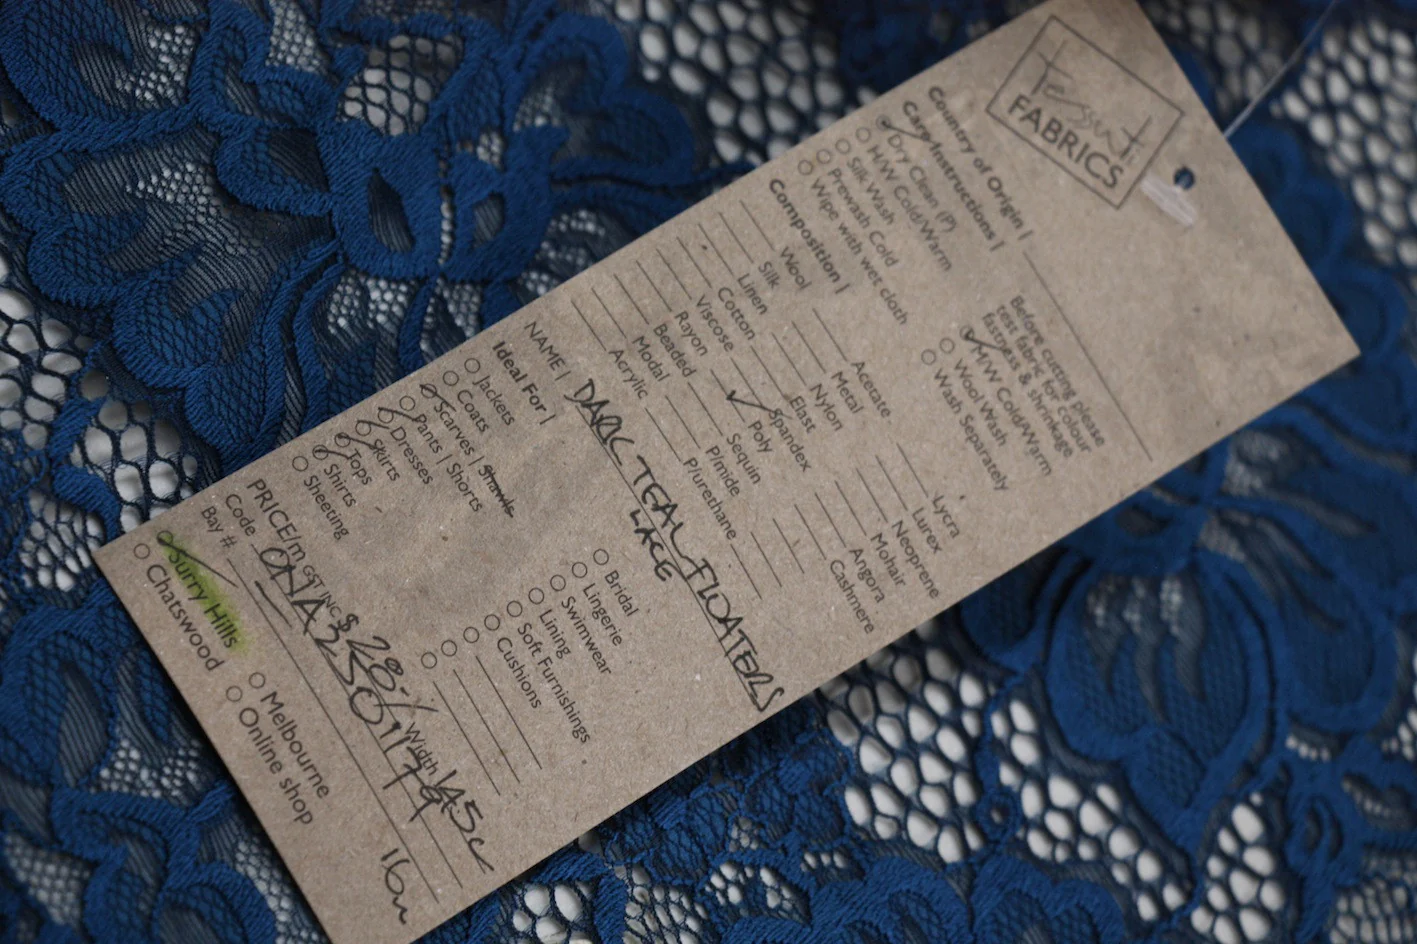 Tessuti
FABRICS
Country of Origin |
Care Instructions |
Dry Clean (P)
H/W Cold/Warm
Silk Wash
Prewash Cold
Wipe with wet cloth
Before cutting please
test fabric for colour
fastness & shrinkage
M/W Cold/Warm
Wool Wash
Wash Separately
Composition |
Wool
Silk
Linen
Cotton
Viscose
Rayon
Beaded
Modal
Acrylic
Acetate
Metal
Nylon
Elast
Spandex
✓ Poly
Sequin
P/mide
P/urethane
Lycra
Lurex
Neoprene
Mohair
Angora
Cashmere
NAME | DARK TEAL FLOATERS
LACE
Ideal For |
Jackets
Coats
Scarves | Shawls
Pants | Shorts
Dresses
Skirts
Tops
Shirts
Sheeting
Bridal
Lingerie
Swimwear
Lining
Soft Furnishings
Cushions
PRICE/m GST INC $ 28.- Width 145c
Code
Bay #
16m
Surry Hills
Chatswood
Melbourne
Online shop